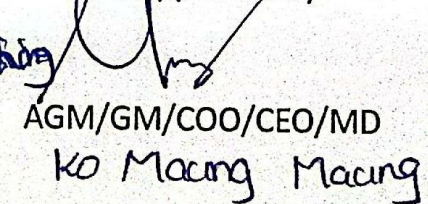 AGM/GM/COO/CEO/MD
Ko Maung Maung